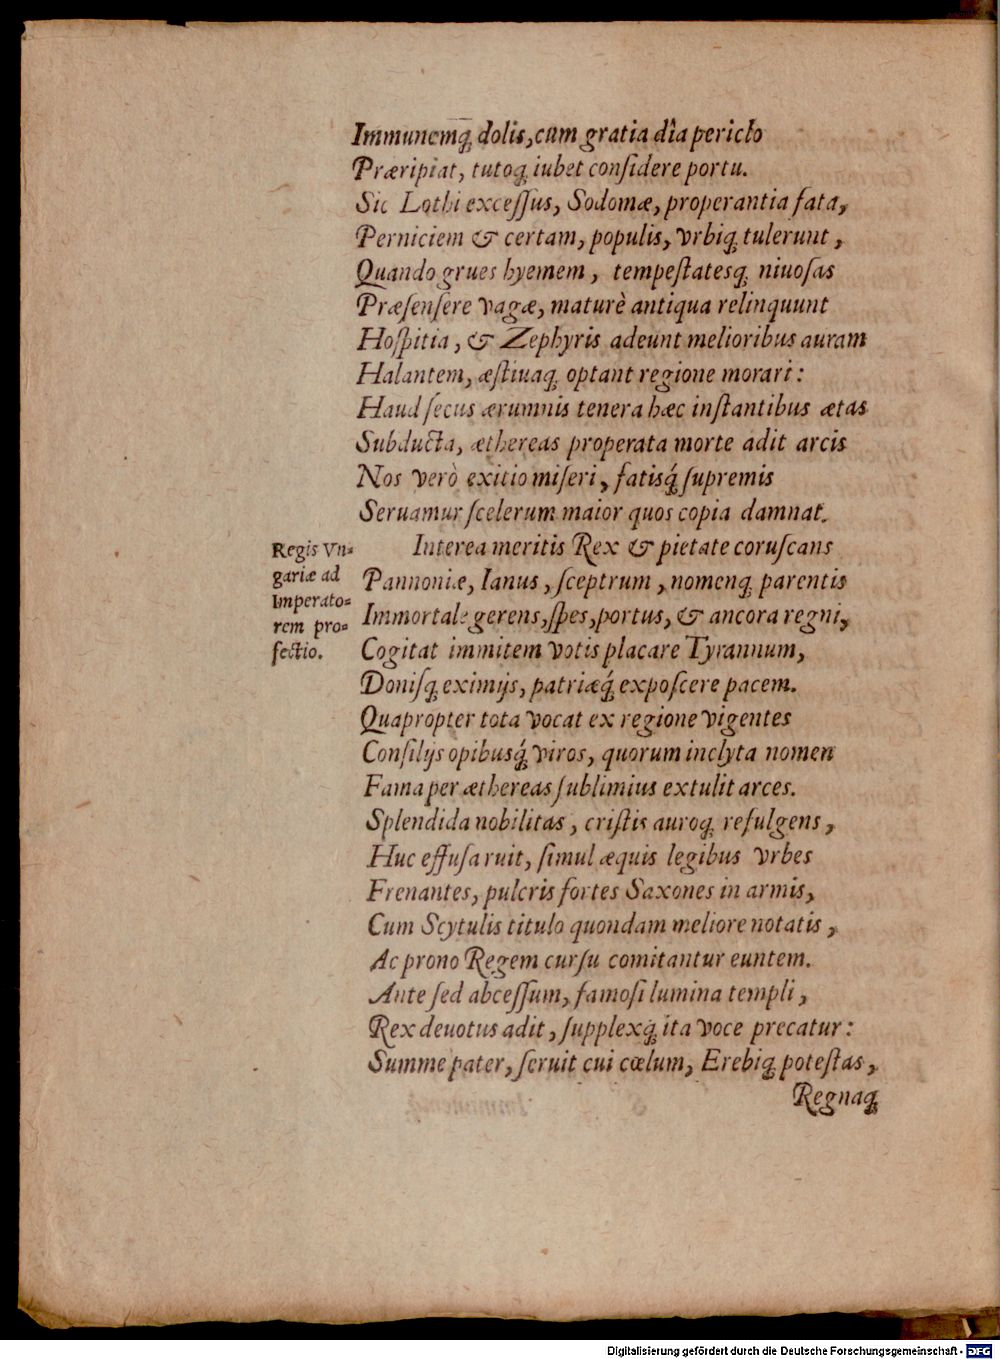 Immunemq́; dolis, cum gratia dîa periclo
Præripiat, tutoq́; iubet conſidere portu.
Sic Lothi exceſſus, Sodomæ, properantia fata,
Perniciem & certam, populis, vrbiq́; tulerunt,
Quando grues hyemem, tempeſtatesq́; niuoſas
Præſenſere vagæ, maturè antiqua relinquunt
Hoſpitia, & Zephyris adeunt melioribus auram
Halantem, æſtiuaq́; optant regione morari:
Haud ſecus ærumnis tenera hæc inſtantibus ætas
Subducta, æthereas properata morte adit arcis
Nos verò exitio miſeri, fatisq́; ſupremis
Seruamur ſcelerum maior quos copia damnat.
Regis Vn=
gariæ ad
Imperato=
rem pro=
fectio.
Interea meritis Rex & pietate coruſcans
Pannoniæ, Ianus, ſceptrum, nomenq́; parentis
Immortale gerens, ſpes, portus, & ancora regni,
Cogitat immitem votis placare Tyrannum,
Donisq́; eximijs, patriæq́; expoſcere pacem.
Quapropter tota vocat ex regione vigentes
Conſilijs opibusq́; viros, quorum inclyta nomen
Fama per æthereas ſublimius extulit arces.
Splendida nobilitas, criſtis auroq́; refulgens,
Huc effuſa ruit, ſimul æquis legibus vrbes
Frenantes, pulcris fortes Saxones in armis,
Cum Scytulis titulo quondam meliore notatis,
Ac prono Regem curſu comitantur euntem.
Ante ſed abceſſum, famoſi lumina templi,
Rex deuotus adit, ſupplexq́; ita voce precatur:
Summe pater, ſeruit cui cœlum, Erebiq́; poteſtas,
Regnaq́;
Digitalisierung gefördert durch die Deutsche Forschungsgemeinschaft - DFG